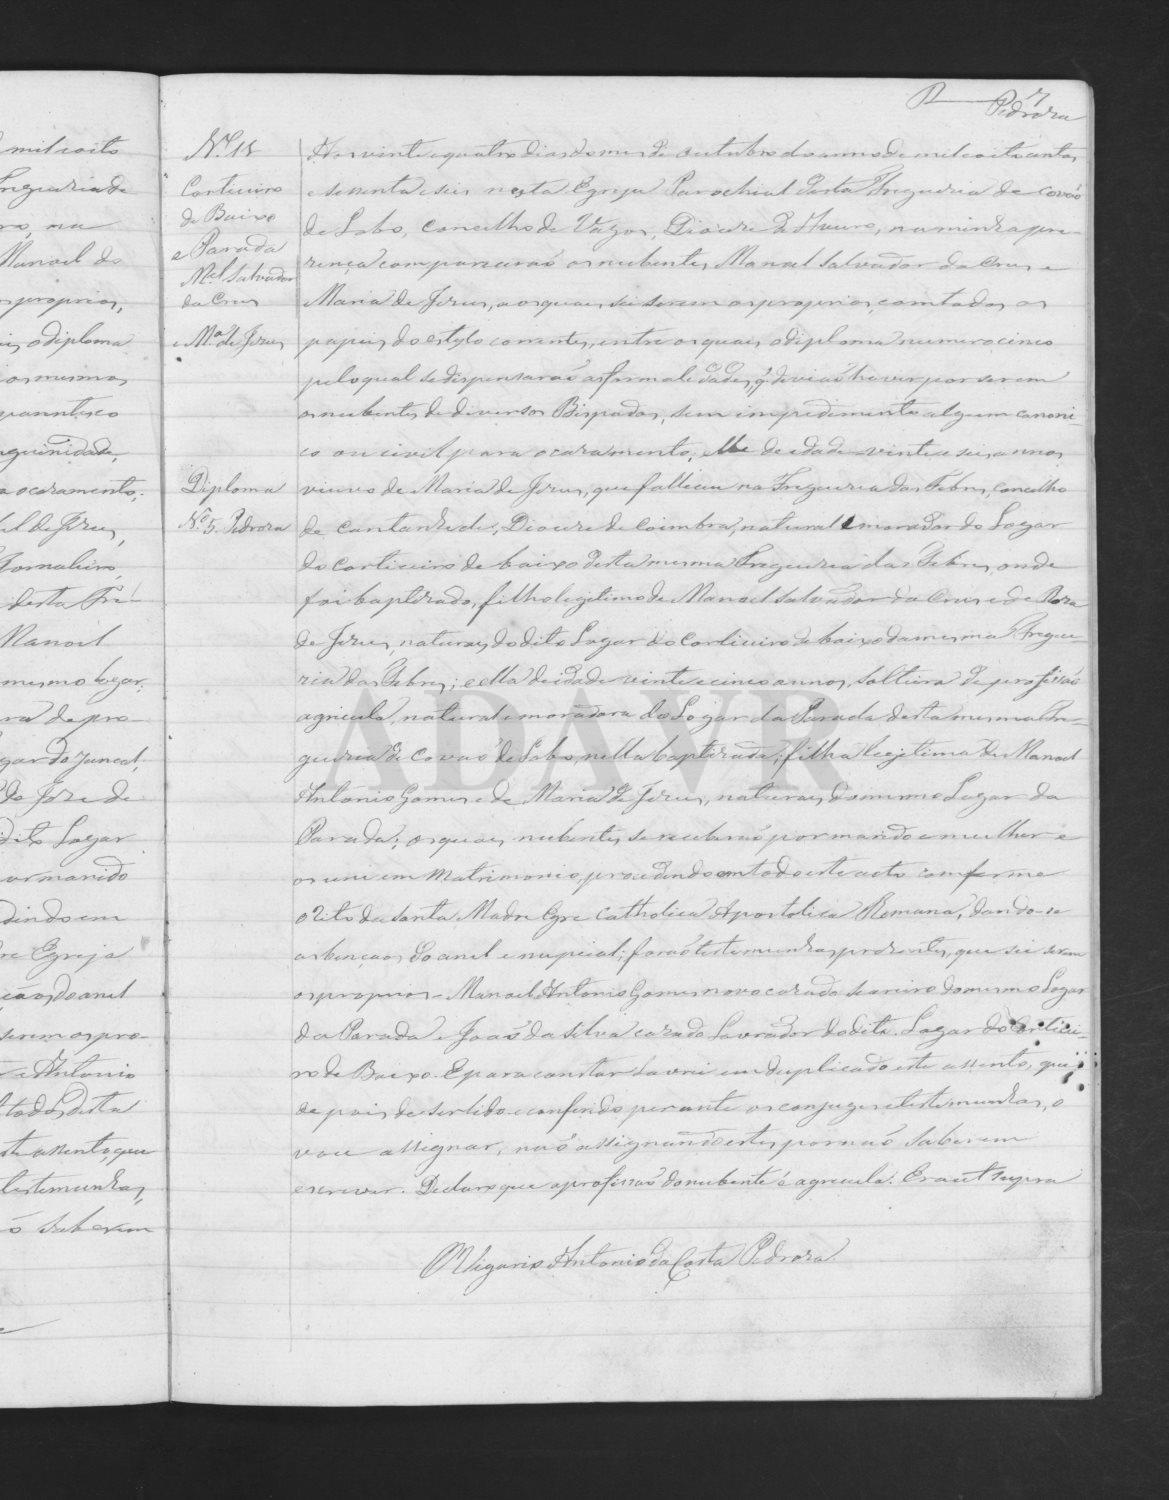 7
Pedroza
Nº 15
Corticeiro
de Baixo
e Parada
Mel Salvador
da Crus
e Mª de Jezus
Diploma
Nº 5. Pedroza
Aos vinte e quatro dias do mes de outubro do anno de mil oito centos
e sessenta e seis nesta Egreja Parochial desta Freguezia de Covaõ
de Lobo, Concelho de Vagos, Diocese de Aveiro, na minha pre-
zença compareceraõ os nubentes Manoel Salvador da Crus e
Maria de Jezus, aos quaes sei serem os proprios, com todos os
papeis do estylo correntes, entre os quaes o diploma numero cinco
pelo qual se dispensaraõ as formalidades, q̃ deviaõ haver por serem
os nubentes de diversos Bispados, sem impedimento algum canoni-
co ou civil para o cazamento; elle de idade vinte e seis annos
viuvo de Maria de Jezus, que falleceu na Freguezia das Febres, concelho
de Cantanhede, Diocese de Coimbra, natural e morador do Logar
do Corticeiro de baixo desta mesma Freguezia das Febres, onde
foi baptizado, filho legitimo de Manoel Salvador da Crus e de Roza
de Jezus, naturaes do dito Logar do Corticeiro de baixo da mesma Fregue
zia das Febres; e ella de idade vinte e cinco annos, solteira de profissaõ
agricula, natural e moradora do Logar da Parada desta mesma Fre-
guezia de Covaõ de Lobo, nella baptizada; filha legitima de Manoel
Antonio Gomes e de Maria de Jezus, naturaes do mesmo Logar da
Parada; os quaes nubentes se receberaõ por marido e mulher e
os uni em Matrimonio procedendo em todo este acto conforme
o rito da Santa Madre Egreja Catholica Apostolica Romana, dando-se
as bençaos do anel e nupcial; foraõ testemunhas prezentes, que sei serem
os proprios - Manoel Antonio Gomes novo cazado seareiro do mesmo Logar
da Parada e Joaõ da Silva cazado Lavrador do dito Logar do Corticei-
ro de Baixo. E para constar lavrei em duplicado este assento, que
de pois de ser lido e conferido perante os conjuges e testemunhas, o
vou assignar, naõ assignando estes por naõ saberem
escrever. Declaro que a profissaõ do nubente é agricula. Era ut supra
O Vigario Antonio da Costa Pedroza
mil e oito
Freguezia de
Manoel de
os proprios,
o diploma
os mesmos
parentesco
o cazamento;
de Jezus,
Jornaleiro,
desta Fre-
Manoel
mesmo Logar;
de pro-
gar do Juncal,
de Joze de
dito Logar
marido
dindo em
Egreja
do anel
serem os pro-
e Antonio
desta
assento, que
testemunhas,
saberem
ADAVR